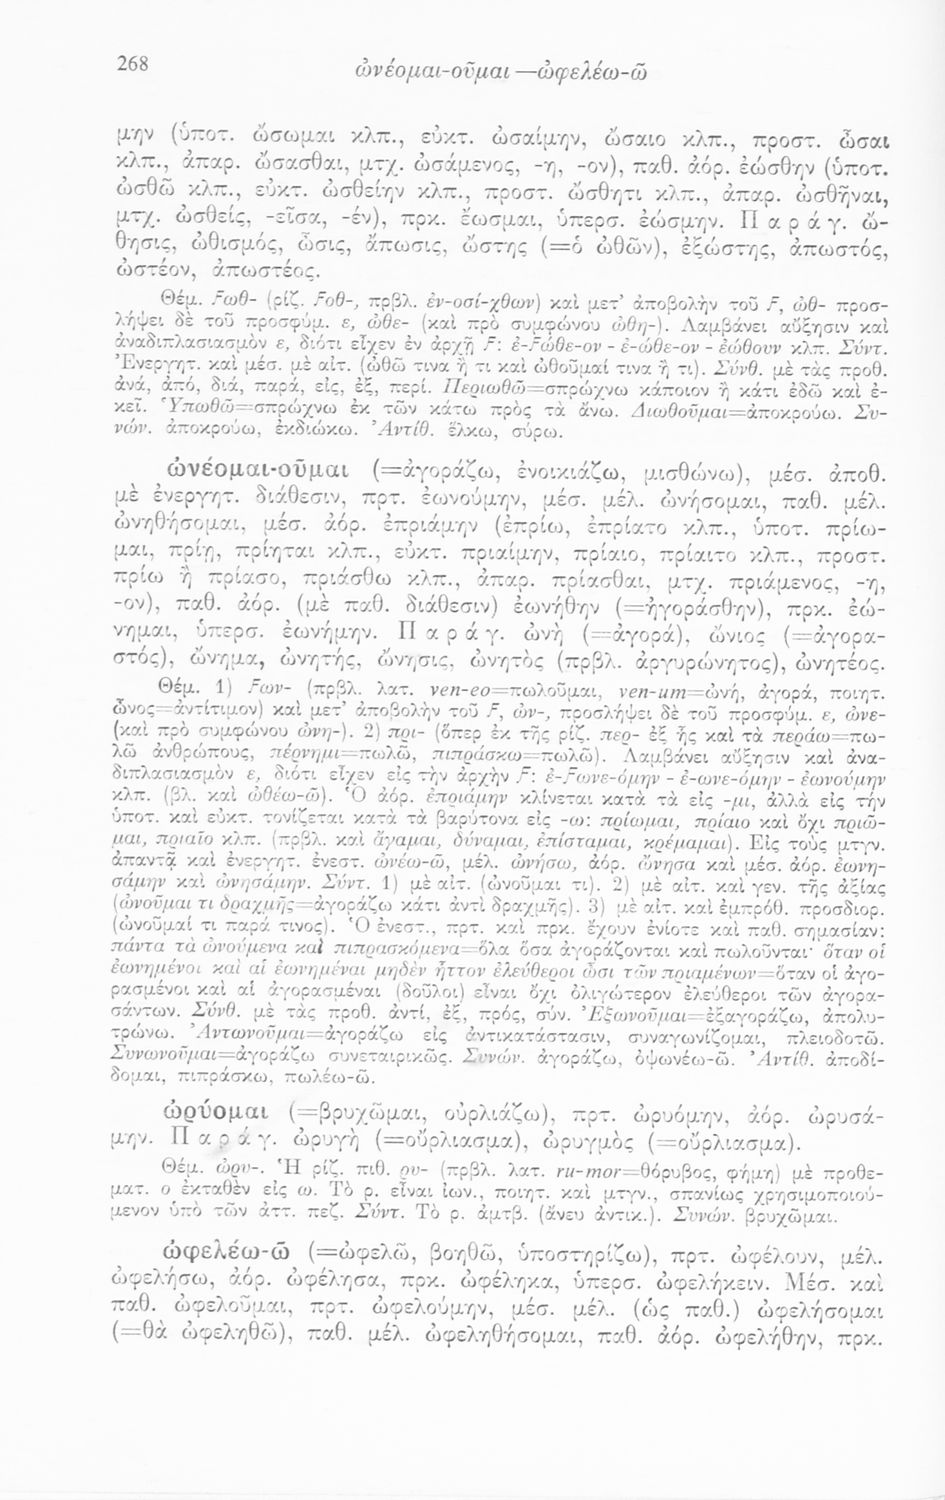 268
ὠνέομαι-οῦμαι —ὠφελέω-ῶ
μην (ὑποτ. ὤσωμαι κλπ., εὐκτ. ὠσαίμην, ὤσαιο κλπ., προστ. ὦσαι
κλπ., ἀπαρ. ὤσασθαι, μτχ. ὠσάμενος, -η, -ον), παθ. ἀόρ. ἐώσθην (ὑποτ.
ὠσθῶ κλπ., εὐκτ. ὠσθείην κλπ., προστ. ὤσθητι κλπ., ἀπαρ. ὠσθῆναι,
μτχ. ὠσθείς, -εῖσα, -έν), πρκ. ἔωσμαι, ὑπερσ. ἐώσμην. Π α ρ ά γ. ὤ-
θησις, ὠθισμός, ὦσις, ἄπωσις, ὤστης (=ὁ ὠθῶν), ἐξώστης, ἀπωστός,
ὠστέον, ἀπωστέος.
Θέμ. Fωθ- (ρίζ. Fοθ-, πρβλ. ἐν-οσί-χθων) καὶ μετ' ἀποβολὴν τοῦ F, ὠθ- προσ-
λήψει δὲ τοῦ προσφύμ. ε, ὠθε- (καὶ πρὸ συμφώνου ὠθη-). Λαμβάνει αὔξησιν καὶ
ἀναδιπλασιασμὸν ε, διότι εἶχεν ἐν ἀρχῇ F: ἐ-Fώθε-ον - ἐ-ώθε-ον - ἐώθουν κλπ. Σύντ.
Ἐνεργητ. καὶ μέσ. μὲ αἰτ. (ὠθῶ τινα ἤ τι καὶ ὠθοῦμαί τινα ἤ τι). Σύνθ. μὲ τὰς προθ.
ἀνά, ἀπό, διά, παρά, εἰς, ἐξ, περί. Περιωθῶ=σπρώχνω κάποιον ἢ κάτι ἐδῶ καὶ ἐ-
κεῖ. Ὑπωθῶ=σπρώχνω ἐκ τῶν κάτω πρὸς τὰ ἄνω. Διωθοῦμαι=ἀποκρούω. Συ-
νών. ἀποκρούω, ἐκδιώκω. Ἀντίθ. ἕλκω, σύρω.
ὠνέομαι-οῦμαι (=ἀγοράζω, ἐνοικιάζω, μισθώνω), μέσ. ἀποθ.
μὲ ἐνεργητ. διάθεσιν, πρτ. ἐωνούμην, μέσ. μέλ. ὠνήσομαι, παθ. μέλ.
ὠνηθήσομαι, μέσ. ἀόρ. ἐπριάμην (ἐπρίω, ἐπρίατο κλπ., ὑποτ. πρίω-
μαι, πρίῃ, πρίηται κλπ., εὐκτ. πριαίμην, πρίαιο, πρίαιτο κλπ., προστ.
πρίω ἢ πρίασο, πριάσθω κλπ., ἀπαρ. πρίασθαι, μτχ. πριάμενος, -η,
-ον), παθ. ἀόρ. (μὲ παθ. διάθεσιν) ἐωνήθην (=ἠγοράσθην), πρκ. ἐώ-
νημαι, ὑπερσ. ἐωνήμην. Π α ρ ά γ. ὠνὴ (=ἀγορά), ὤνιος (=ἀγορα-
στός), ὤνημα, ὠνητής, ὤνησις, ὠνητὸς (πρβλ. ἀργυρώνητος), ὠνητέος.
Θέμ. 1) Fων- (πρβλ. λατ. ven-eo=πωλοῦμαι, ven-um=ὠνή, ἀγορά, ποιητ.
ὦνος=ἀντίτιμον) καὶ μετ' ἀποβολὴν τοῦ F, ὠν-, προσλήψει δὲ τοῦ προσφύμ. ε, ὠνε-
(καὶ πρὸ συμφώνου ὠνη-). 2) πρι- (ὅπερ ἐκ τῆς ρίζ. περ- ἐξ ἧς καὶ τὰ περάω=πω-
λῶ ἀνθρώπους, πέρνημι=πωλῶ, πιπράσκω=πωλῶ). Λαμβάνει αὔξησιν καὶ ἀνα-
διπλασιασμὸν ε, διότι εἶχεν εἰς τὴν ἀρχὴν F: ἐ-Fωνε-όμην - ἐ-ωνε-όμην - ἐωνούμην
κλπ. (βλ. καὶ ὠθέω-ῶ). Ὁ ἀόρ. ἐπριάμην κλίνεται κατὰ τὰ εἰς -μι, ἀλλὰ εἰς τὴν
ὑποτ. καὶ εὐκτ. τονίζεται κατὰ τὰ βαρύτονα εἰς -ω: πρίωμαι, πρίαιο καὶ ὄχι πριῶ-
μαι, πριαῖο κλπ. (πρβλ. καὶ ἄγαμαι, δύναμαι, ἐπίσταμαι, κρέμαμαι). Εἰς τοὺς μτγν.
ἀπαντᾷ καὶ ἐνεργητ. ἐνεστ. ὠνέω-ῶ, μέλ. ὠνήσω, ἀόρ. ὤνησα καὶ μέσ. ἀόρ. ἐωνη-
σάμην καὶ ὠνησάμην. Σύντ. 1) μὲ αἰτ. (ὠνοῦμαι τι). 2) μὲ αἰτ. καὶ γεν. τῆς ἀξίας
(ὠνοῦμαι τι δραχμῆς=ἀγοράζω κάτι ἀντὶ δραχμῆς). 3) μὲ αἰτ. καὶ ἐμπρόθ. προσδιορ.
(ὠνοῦμαί τι παρά τινος). Ὁ ἐνεστ., πρτ. καὶ πρκ. ἔχουν ἐνίοτε καὶ παθ. σημασίαν:
πάντα τὰ ὠνούμενα καὶ πιπρασκόμενα=ὅλα ὅσα ἀγοράζονται καὶ πωλοῦνται· ὅταν οἱ
ἐωνημένοι καὶ αἱ ἐωνημέναι μηδὲν ἧττον ἐλεύθεροι ὦσι τῶν πριαμένων=ὅταν οἱ ἀγο-
ρασμένοι καὶ αἱ ἀγορασμέναι (δοῦλοι) εἶναι ὄχι ὀλιγώτερον ἐλεύθεροι τῶν ἀγορα-
σάντων. Σύνθ. μὲ τὰς προθ. ἀντί, ἐξ, πρός, σύν. Ἐξωνοῦμαι=ἐξαγοράζω, ἀπολυ-
τρώνω. Ἀντωνοῦμαι=ἀγοράζω εἰς ἀντικατάστασιν, συναγωνίζομαι, πλειοδοτῶ.
Συνωνοῦμαι=ἀγοράζω συνεταιρικῶς. Συνών. ἀγοράζω, ὀψωνέω-ῶ. Ἀντίθ. ἀποδί-
δομαι, πιπράσκω, πωλέω-ῶ.
ὠρύομαι (=βρυχῶμαι, οὐρλιάζω), πρτ. ὠρυόμην, ἀόρ. ὠρυσά-
μην. Π α ρ ά γ. ὠρυγὴ (=οὔρλιασμα), ὠρυγμὸς (=οὔρλιασμα).
Θέμ. ὠρυ-. Ἡ ρίζ. πιθ. ρυ- (πρβλ. λατ. ru-mor=θόρυβος, φήμη) μὲ προθε-
ματ. ο ἐκταθὲν εἰς ω. Τὸ ρ. εἶναι ἰων., ποιητ. καὶ μτγν., σπανίως χρησιμοποιού-
μενον ὑπὸ τῶν ἀττ. πεζ. Σύντ. Τὸ ρ. ἀμτβ. (ἄνευ ἀντικ.). Συνών. βρυχῶμαι.
ὠφελέω-ῶ (=ὠφελῶ, βοηθῶ, ὑποστηρίζω), πρτ. ὠφέλουν, μέλ.
ὠφελήσω, ἀόρ. ὠφέλησα, πρκ. ὠφέληκα, ὑπερσ. ὠφελήκειν. Μέσ. καὶ
παθ. ὠφελοῦμαι, πρτ. ὠφελούμην, μέσ. μέλ. (ὡς παθ.) ὠφελήσομαι
(=θὰ ὠφεληθῶ), παθ. μέλ. ὠφεληθήσομαι, παθ. ἀόρ. ὠφελήθην, πρκ.